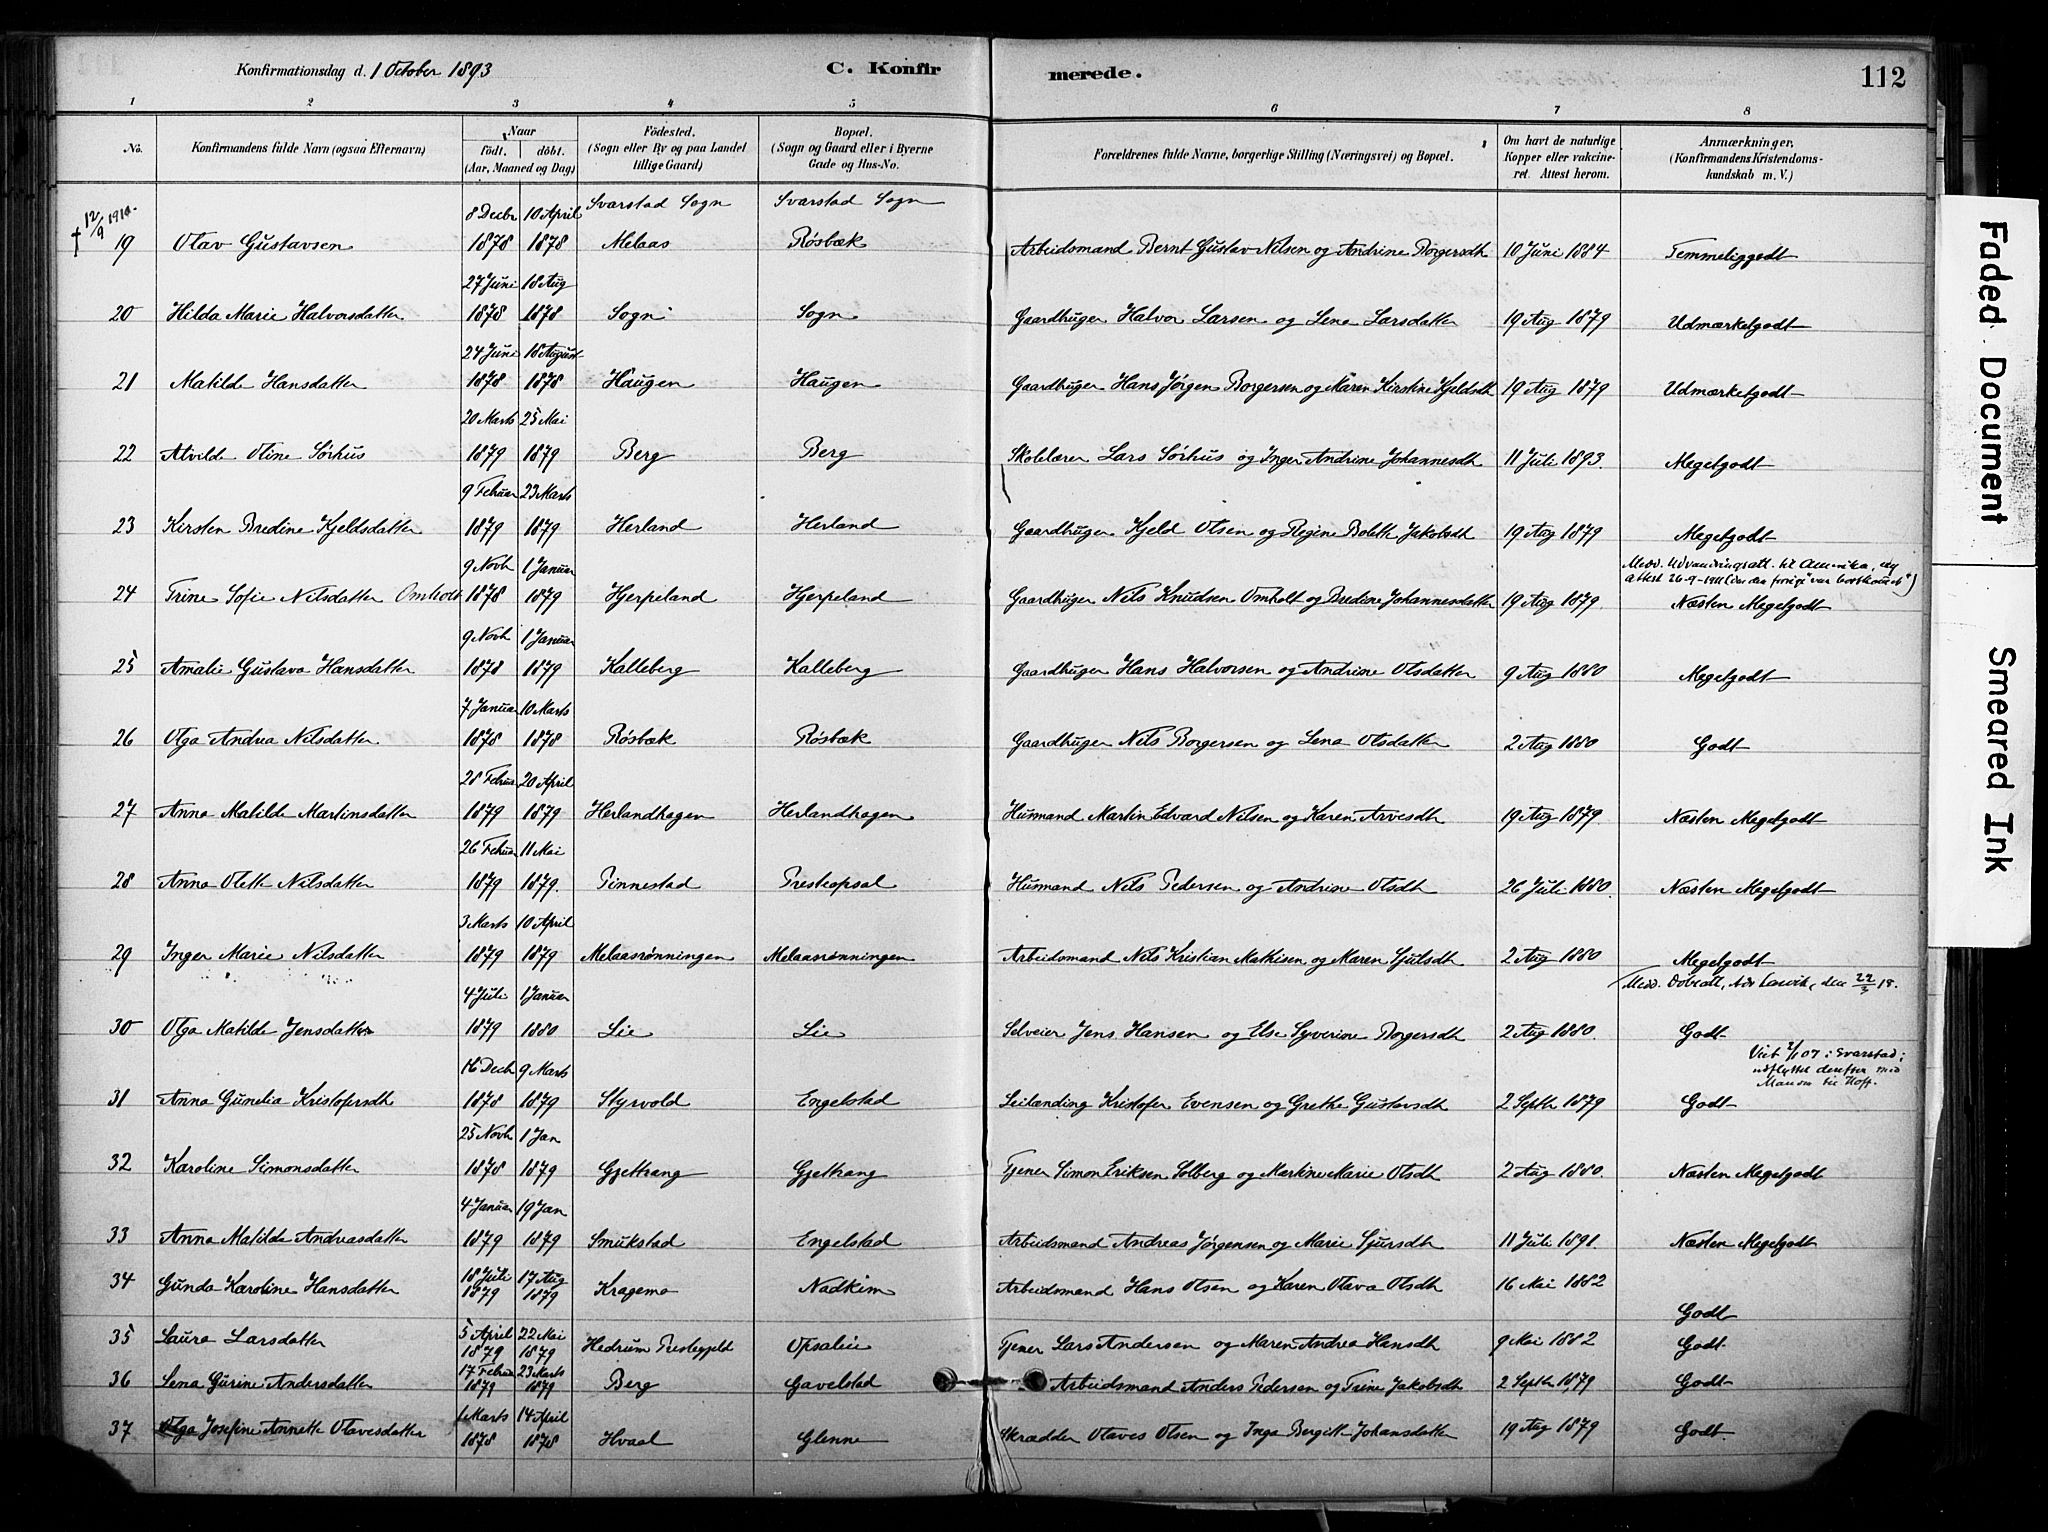 Konfirmationsdag d. 1 October 1893 C. Konfirmerede. 112
1 2 3 4 5 6 7 8
No. Konfirmandens fulde Navn (ogsaa Efternavn) Naar födt. döbt. (Aar, Maaned og Dag) Födested. (Sogn eller By og paa Landet tillige Gaard) Bopæl. (Sogn og Gaard eller i Byerne Gade og Hus-No. Forældrenes fulde Navne, borgerlige Stilling (Næringsvei) og Bopæl. Om havt de naturlige Kopper eller vakcineret. Attest herom. Anmærkninger. (Konfirmandens Kristendomskundskab m. V.)
† 12/9 1910.
8 Decbr 10 April Svarstad Sogn Svarstad Sogn
19 Olav Gustavsen 1878 1878 Melaas Røsbæk Arbeidsmand Bernt Gustav Nilsen og Andrine Borgersdtr 10 Juni 1884 Temmeliggodt
27 Juni 18 Aug
20 Hilda Marie Halvorsdatter 1878 1878 Sogn Sogn Gaardbruger Halvor Larsen og Lena Larsdatter 19 Aug 1879 Udmærketgodt
24 Juni 18 August
21 Matilde Hansdatter 1878 1878 Haugen Haugen Gaardbruger Hans Jørgen Borgersen og Maren Kirstine Kjeldsdtr 19 Aug 1879 Udmærketgodt
20 Marts 25 Mai
22 Alvilde Oline Sørhus 1879 1879 Berg Berg Skolelærer Lars Sørhus og Inger Andrine Johannesdtr 11 Juli 1893. Megetgodt
9 Februar 23 Marts
23 Kirsten Bredine Kjeldsdatter 1879 1879 Herland Herland Gaardbruger Kjeld Olsen og Regine Bolette Jakobsdtr 19 Aug 1879 Megetgodt
9 Novb 1 Januar Medd. Udvandringsatt. til Amerika, ny attest 26-9-1911 (da den forrige "var bortkommet")
24 Trine Sofie Nilsdatter Omholt 1878 1879 Hjerpeland Hjerpeland Gaardbruger Nils Knudsen Omholt og Bredine Johannesdatter 19 Aug 1879. Næsten Megetgodt
9 Novb 1 Januar
25 Amalie Gustava Hansdatter 1878 1879 Kalleberg Kalleberg Gaardbruger Hans Halvorsen og Andrine Olsdatter 9 Aug 1880 Megetgodt
7 Januar 10 Marts
26 Olga Andrea Nilsdatter. 1878 1878 Røsbæk Røsbæk Gaardbruger Nils Borgersen og Lena Olsdatter 2 Aug 1880 Godt
28 Februar 20 April
27 Anna Matilde Martinsdatter 1879 1879 Herlandhagen Herlandhagen Husmand Martin Edvard Nilsen og Karen Arvesdtr 19 Aug 1879. Næsten Megetgodt
26 Februar 11 Mai
28 Anna Olette Nilsdatter 1879 1879. Tinnestad Prestopsal Husmand Nils Pedersen og Andrine Olsdtr 26 Juli 1880. Næsten Megetgodt
3 Marts 10 April
29 Inger Marie Nilsdatter 1879 1879 Melaasrønningen Melaasrønningen Arbeidsmand Nils Kristian Mathisen og Maren Sjulsdtr 2 Aug 1880 Megetgodt
4 Juli 1 Januar Medd. Dobsatt, Larvik, den 22/3 18.
30 Olga Matilde Jensdatter 1879 1880 Lie Lie Selveier Jens Hansen og Else Syverine Borgersdtr 2 Aug 1880. Godt
16 Decb 9 Marts Viet 07 i Svarstad; udflyttet derefter med Manden til Hoff.
31 Anna Gunelia Kristofersdtr 1878 1879 Styrvold Engelstad Leilænding Kristofer Evensen og Grethe Gustavsdtr 2 Septbr 1879 Godt
25 Novb 1 Jan
32 Karoline Simonsdatter 1878 1879 Gjettrang Gjettrang Tjener Simon Eriksen Solberg og Martine Marie Olsdtr 2 Aug 1880. Næsten Megetgodt
4 Januar 19 Jan
33 Anna Matilde Andreasdatter 1879 1879 Smukstad Engelstad Arbeidsmand Andreas Jørgensen og Marie Sjursdtr 11 Juli 1891. Næsten Megetgodt
34 Gunda Karoline Hansdatter 18 Juli 1879 17 Aug 1879 Kragemo Nadkim Arbeidsmand Hans Olsen og Karen Olava Olsdtr 16 Mai 1882 Godt
35 Laura Larsdatter 5 April 1879 22 Mai 1879 Hedrum Prestegjeld Opsalie Tjener Lars Andersen og Maren Andrea Hansdtr 9 Mai 1882 Godt
36 Lena Gurine Andersdatter 17 Februar 1879 23 Marts 1879 Berg Gavelstad Arbeidsmand Anders Pedersen og Trine Jakobsdtr 2 Septbr 1879 Godt
37 Olga Josefine Annette Olavesdatter 1 Marts 1878 14 April 1878 Hvaal Glenne Skrædder Olaves Olsen og Inga Bergitte Johansdatter 19 Aug 1879 Godt.
Faded Document
Smeared Ink